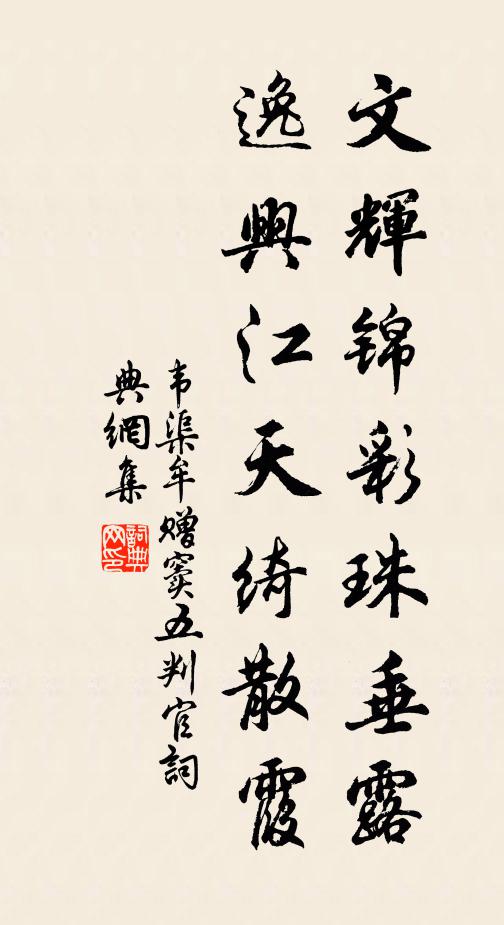 文輝锦彩珠垂露
逸興江天绮散霞
韦渠牟赠窦五判官詞
典網集
詞典网印